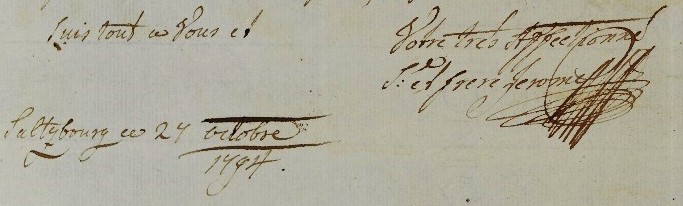 Suis tout a Vous et
Votre très Affectionné
Sr. et frere jerome
Saltzbourg ce 27 octobre
1794.